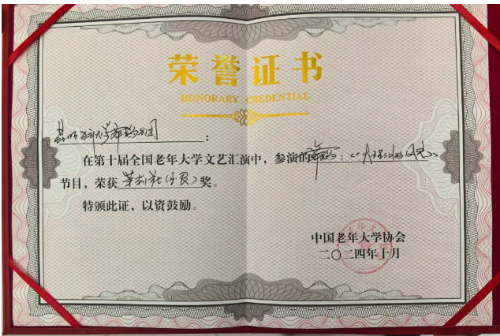 荣誉证书
HONORARY CREDENTIAL
:
在第十届全国老年大学文艺汇演中，参演的舞蹈：《
》
节目，荣获
奖。
特颁此证，以资鼓励。
中国老年大学协会
二〇二四年十月